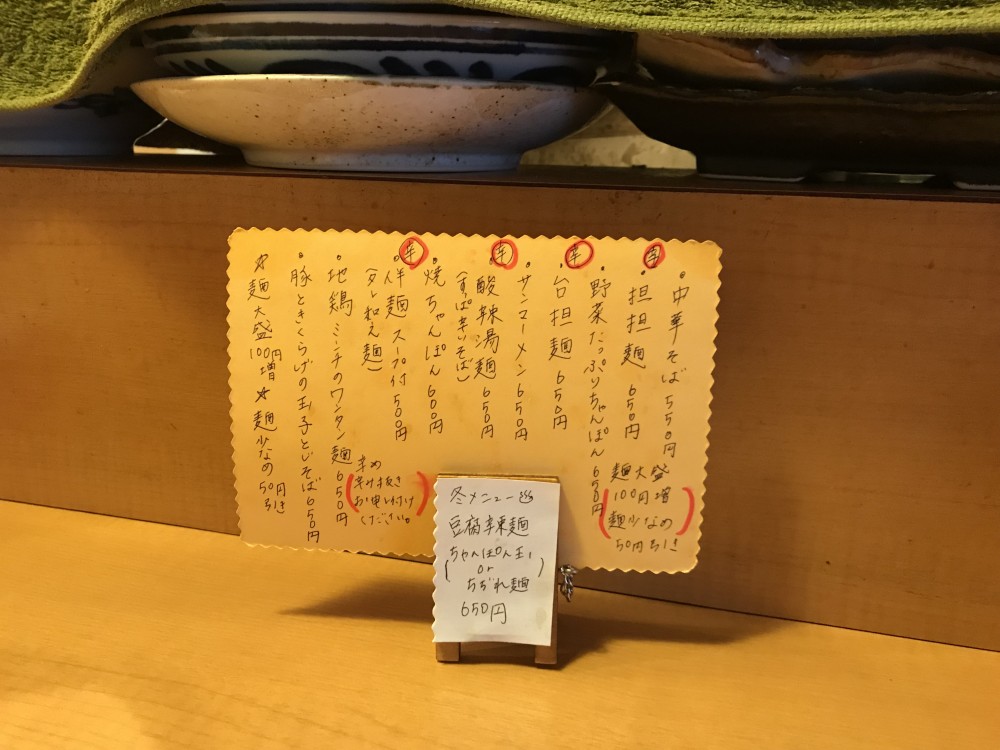 ・中華そば 550円
辛
・担担麺 650円
・野菜たっぷりちゃんぽん 650円
麺大盛
100円増
麺少なめ
50円引き
辛
・台担麺 650円
・サンマーメン 650円
辛
・酸辣湯麺 650円
(すっぱ辛いそば)
・焼ちゃんぽん 600円
辛
・伴麺 スープ付 500円
(タレ和え麺)
辛め
辛み抜き
お申し付け
ください。
・地鶏ミーンチのワンタン麺 650円
・豚ときくらげの玉子とじそば 650円
☆麺大盛100円増 ☆麺少なめ50円引き
冬メニュー
豆腐辣麺
ちゃんぽん玉
or
ちぢれ麺
650円